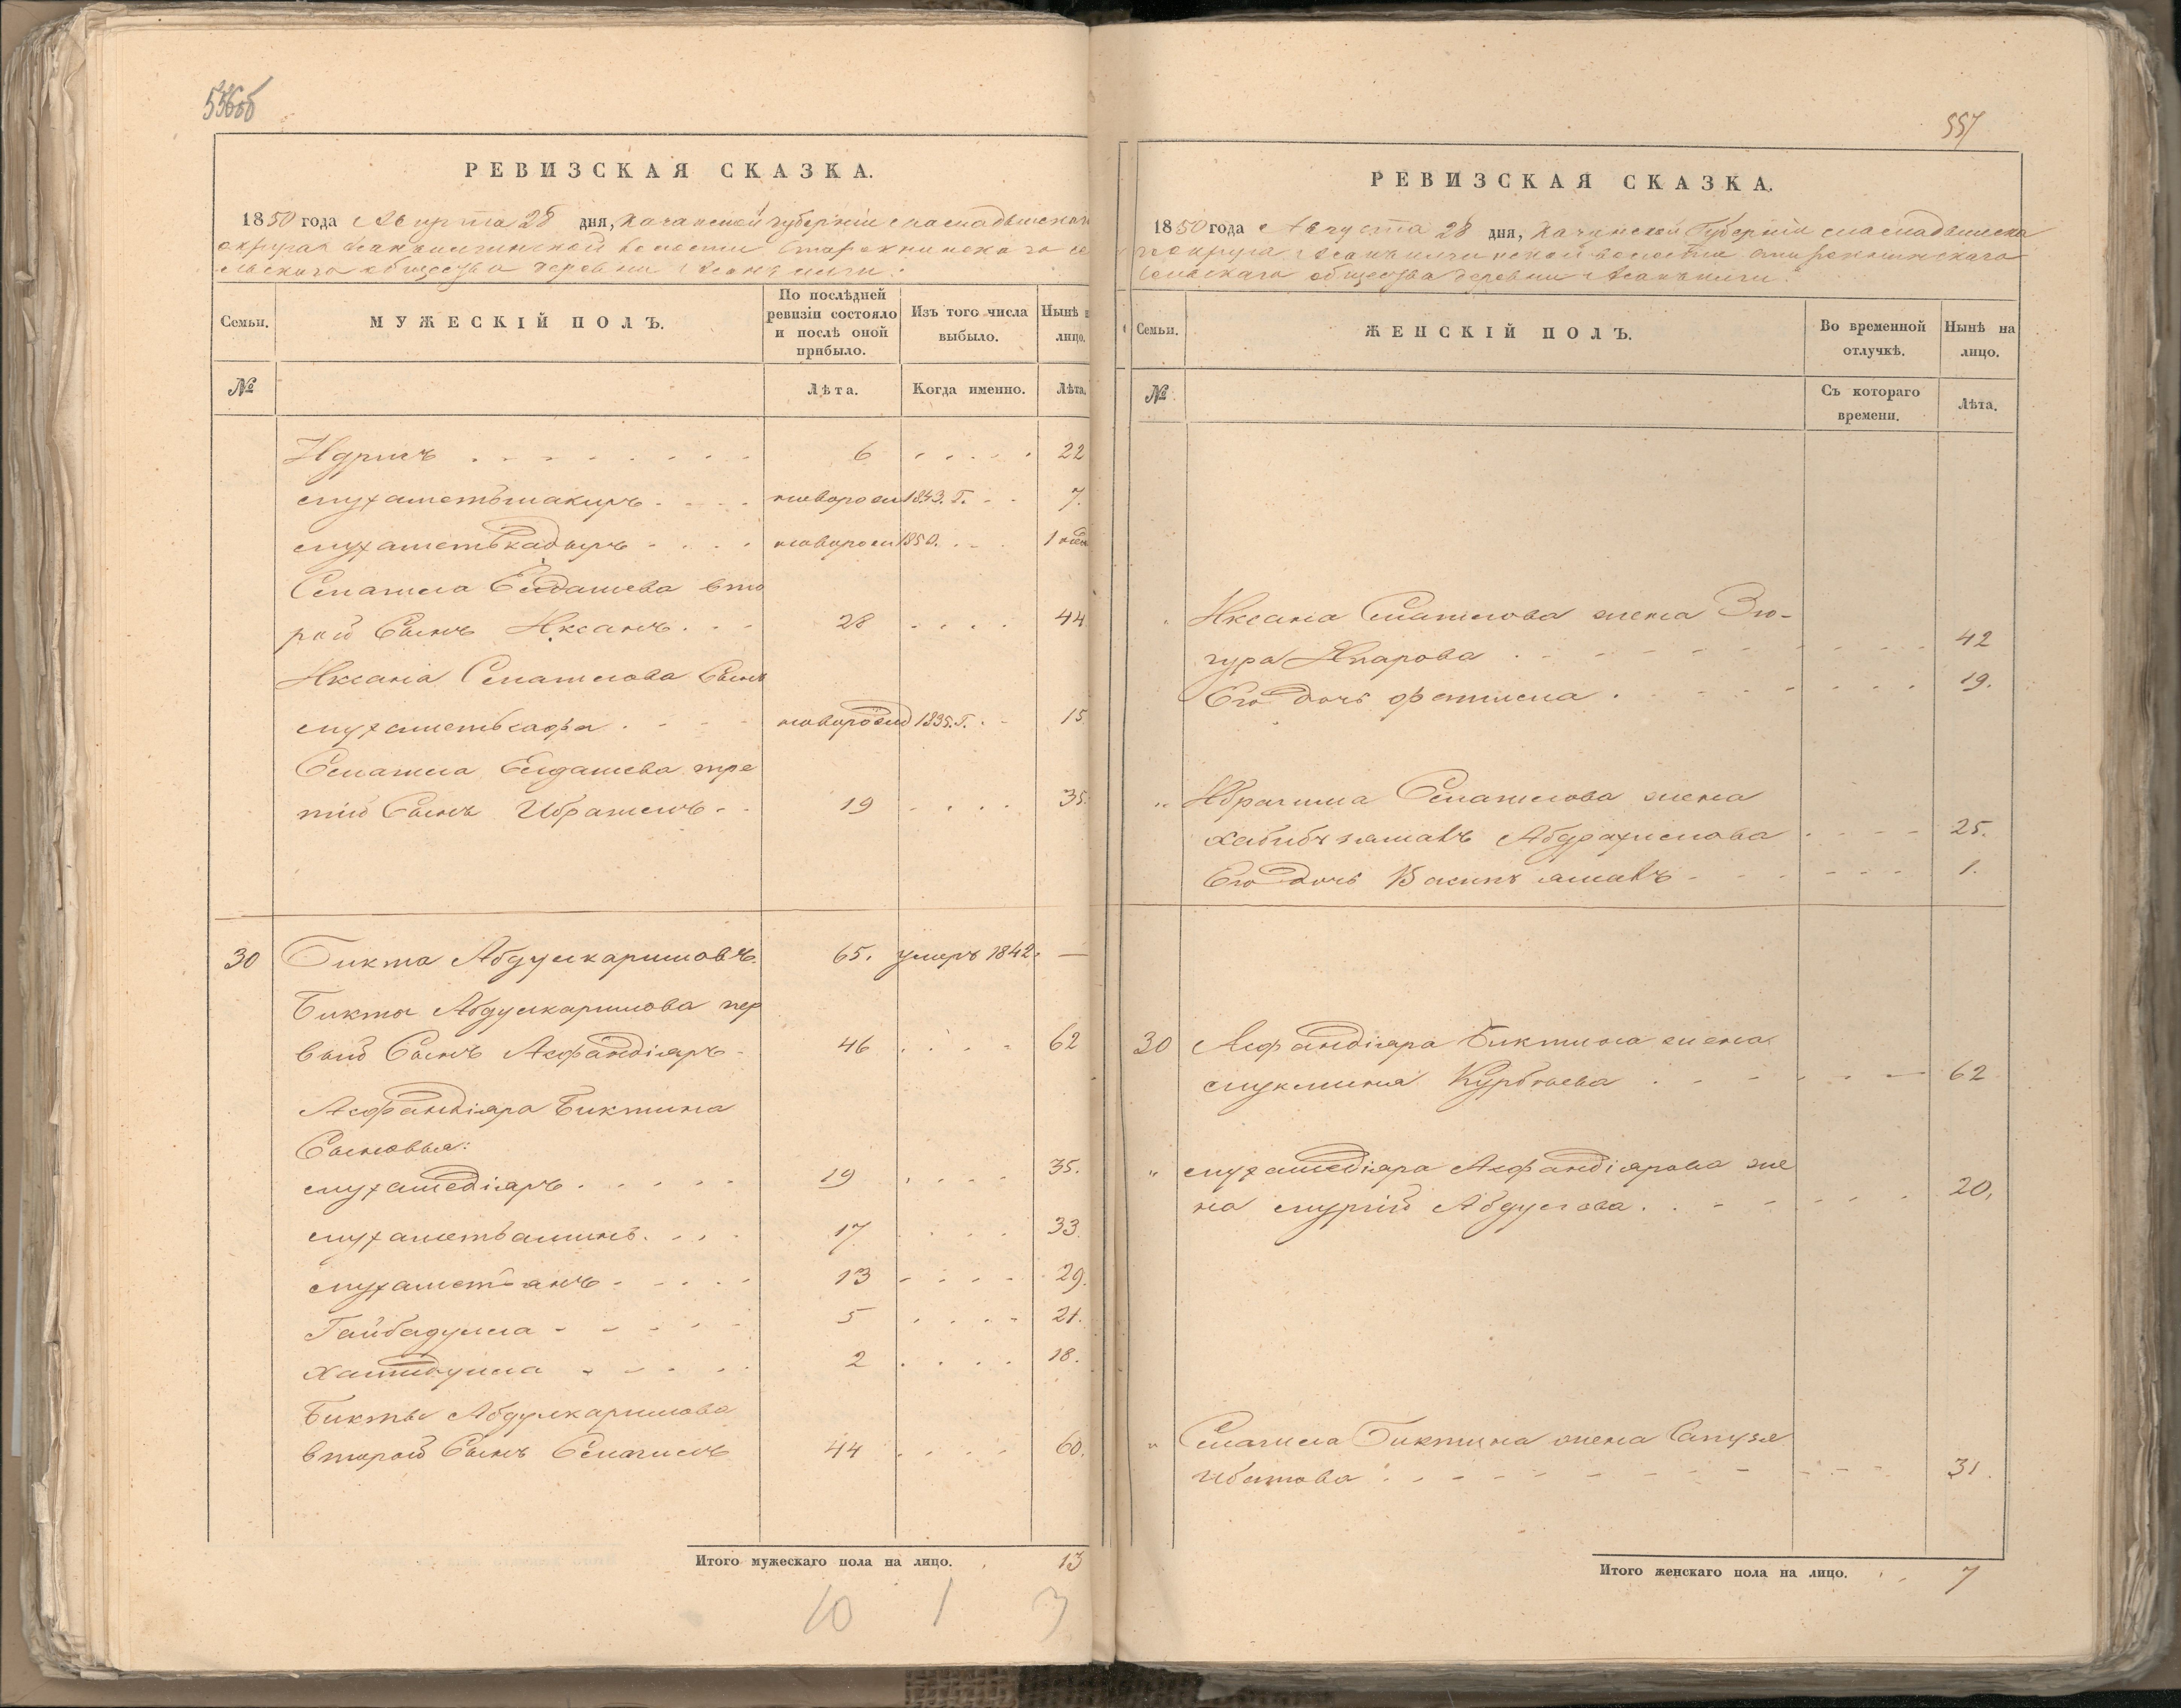 556об
РЕВИЗСКАЯ СКАЗКА.
1850 года Августа 28 дня, Казанской губерніи Мамадышскаго
округа
сельскаго общества деревни
Семьи.
МУЖЕСКІЙ ПОЛЪ.
По послѣдней ревизіи состояло и послѣ оной прибыло.
Изъ того числа выбыло.
Нынѣ н лицо.
№
Лѣта.
Когда именно.
Лѣта.
Идрисъ 6 22
Мухаметьшакиръ новорож 1843. Г. 7.
Мухаметькадыръ новорож 1850. 1 нед
Смагила Елдашева вто
рой Сынъ Иксанъ 28 44
Иксана Смагилова Сынъ
Мухаметьсафа новорожд 1835. Г. 15
Смагила Елдашева тре
тій Сынъ Ибрагимъ 19 35.
30 Бикта Абдулкаримовъ. 65. умеръ 1842. —
Бикты Абдулкаримова пер
вый Сынъ Асфандіяръ 46 62
Асфандіяра Биктина
Сыновья:
Мухамедіяръ 19 35.
Мухаметьаминъ 17 33.
Мухаметьянъ 13 29.
Гайбадулла 5 21.
Хамидулла 2 18.
Бикты Абдулкаримова
второй Сынъ Смагилъ 44 60.
Итого мужескаго пола на лицо. 13
10 1 3
557
РЕВИЗСКАЯ СКАЗКА.
1850 года Августа 28 дня, Казанской Губерніи Мамадышска
го округа волости
Сельскаго общества деревни
Семьи.
ЖЕНСКІЙ ПОЛЪ.
Во временной отлучкѣ.
Нынѣ на лицо.
№
Съ котораго времени.
Лѣта.
" Иксана Смагилова жена Зю-
гура Апарова 42
Его дочь Фатима 19.
" Ибрагима Смагилова жена
Хабибъ Абдрахимова 25.
Его дочь 1.
30 Асфандіяра Биктина жена
Курбаева 62
" Мухамедіяра Асфандіярова же
на Абдулова 20,
" Смагила Биктина жена
31.
Итого женскаго пола на лицо. 7